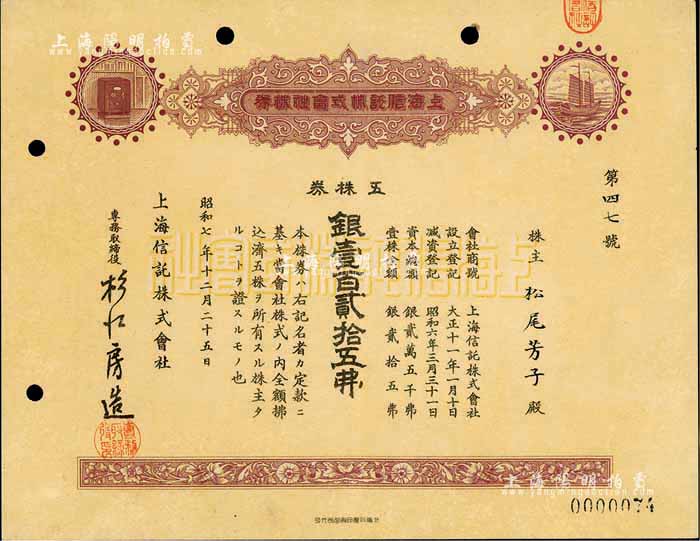 上海陽明拍賣
www.yangmingauction.com
上海信託株式會社株券
五株券
第四七號
株主 松尾芳子 殿
會社商號 上海信託株式會社
設立登記 大正十一年一月十日
減資登記 昭和六年三月三十一日
資本總額 銀貳萬五千弗
壹株金額 銀貳拾五弗
銀壹百貳拾五弗
本株券ハ右記名者カ定款ニ
基キ當會社株式ノ內全額拂
込濟五株ヲ所有スル株主タ
ルコトヲ證スルモノ也
昭和七年十二月二十五日
上海信託株式會社
專務取締役 杉江房造
上海信託株式會社
上海陽明拍賣
www.yangmingauction.com
上海陽明拍賣
www.yangmingauction.com
0000074